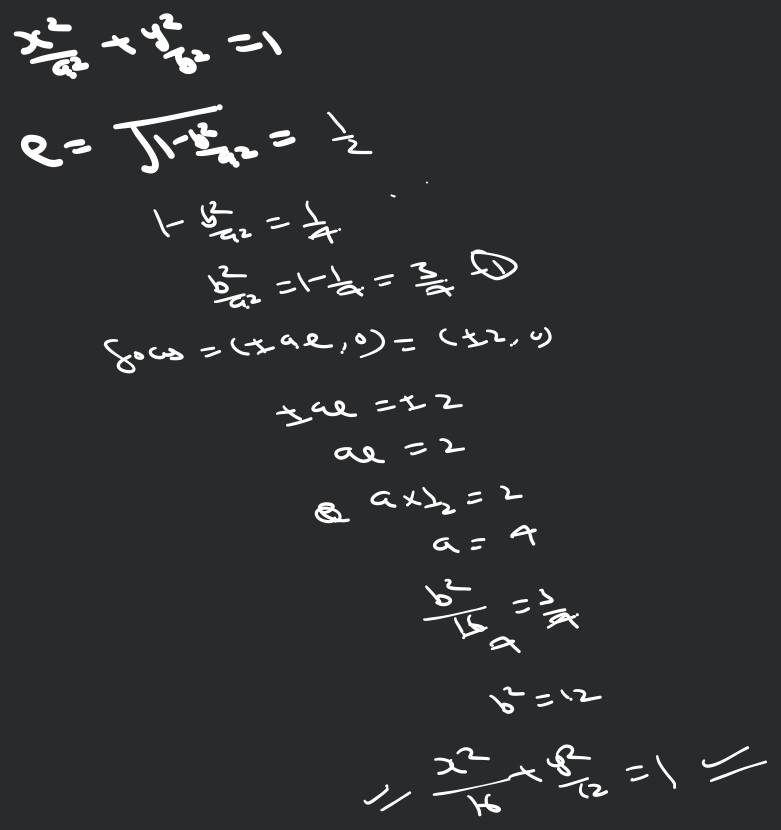 x²/a² + y²/b² = 1
e = √(1 - b²/a²) = 1/2
1 - b²/a² = 1/4
b²/a² = 1 - 1/4 = 3/4 -①
focus = (±ae, 0) = (±2, 0)
±ae = ±2
ae = 2
a × 1/2 = 2
a = 4
b²/16 = 3/4
4
b² = 12
x²/16 + y²/12 = 1